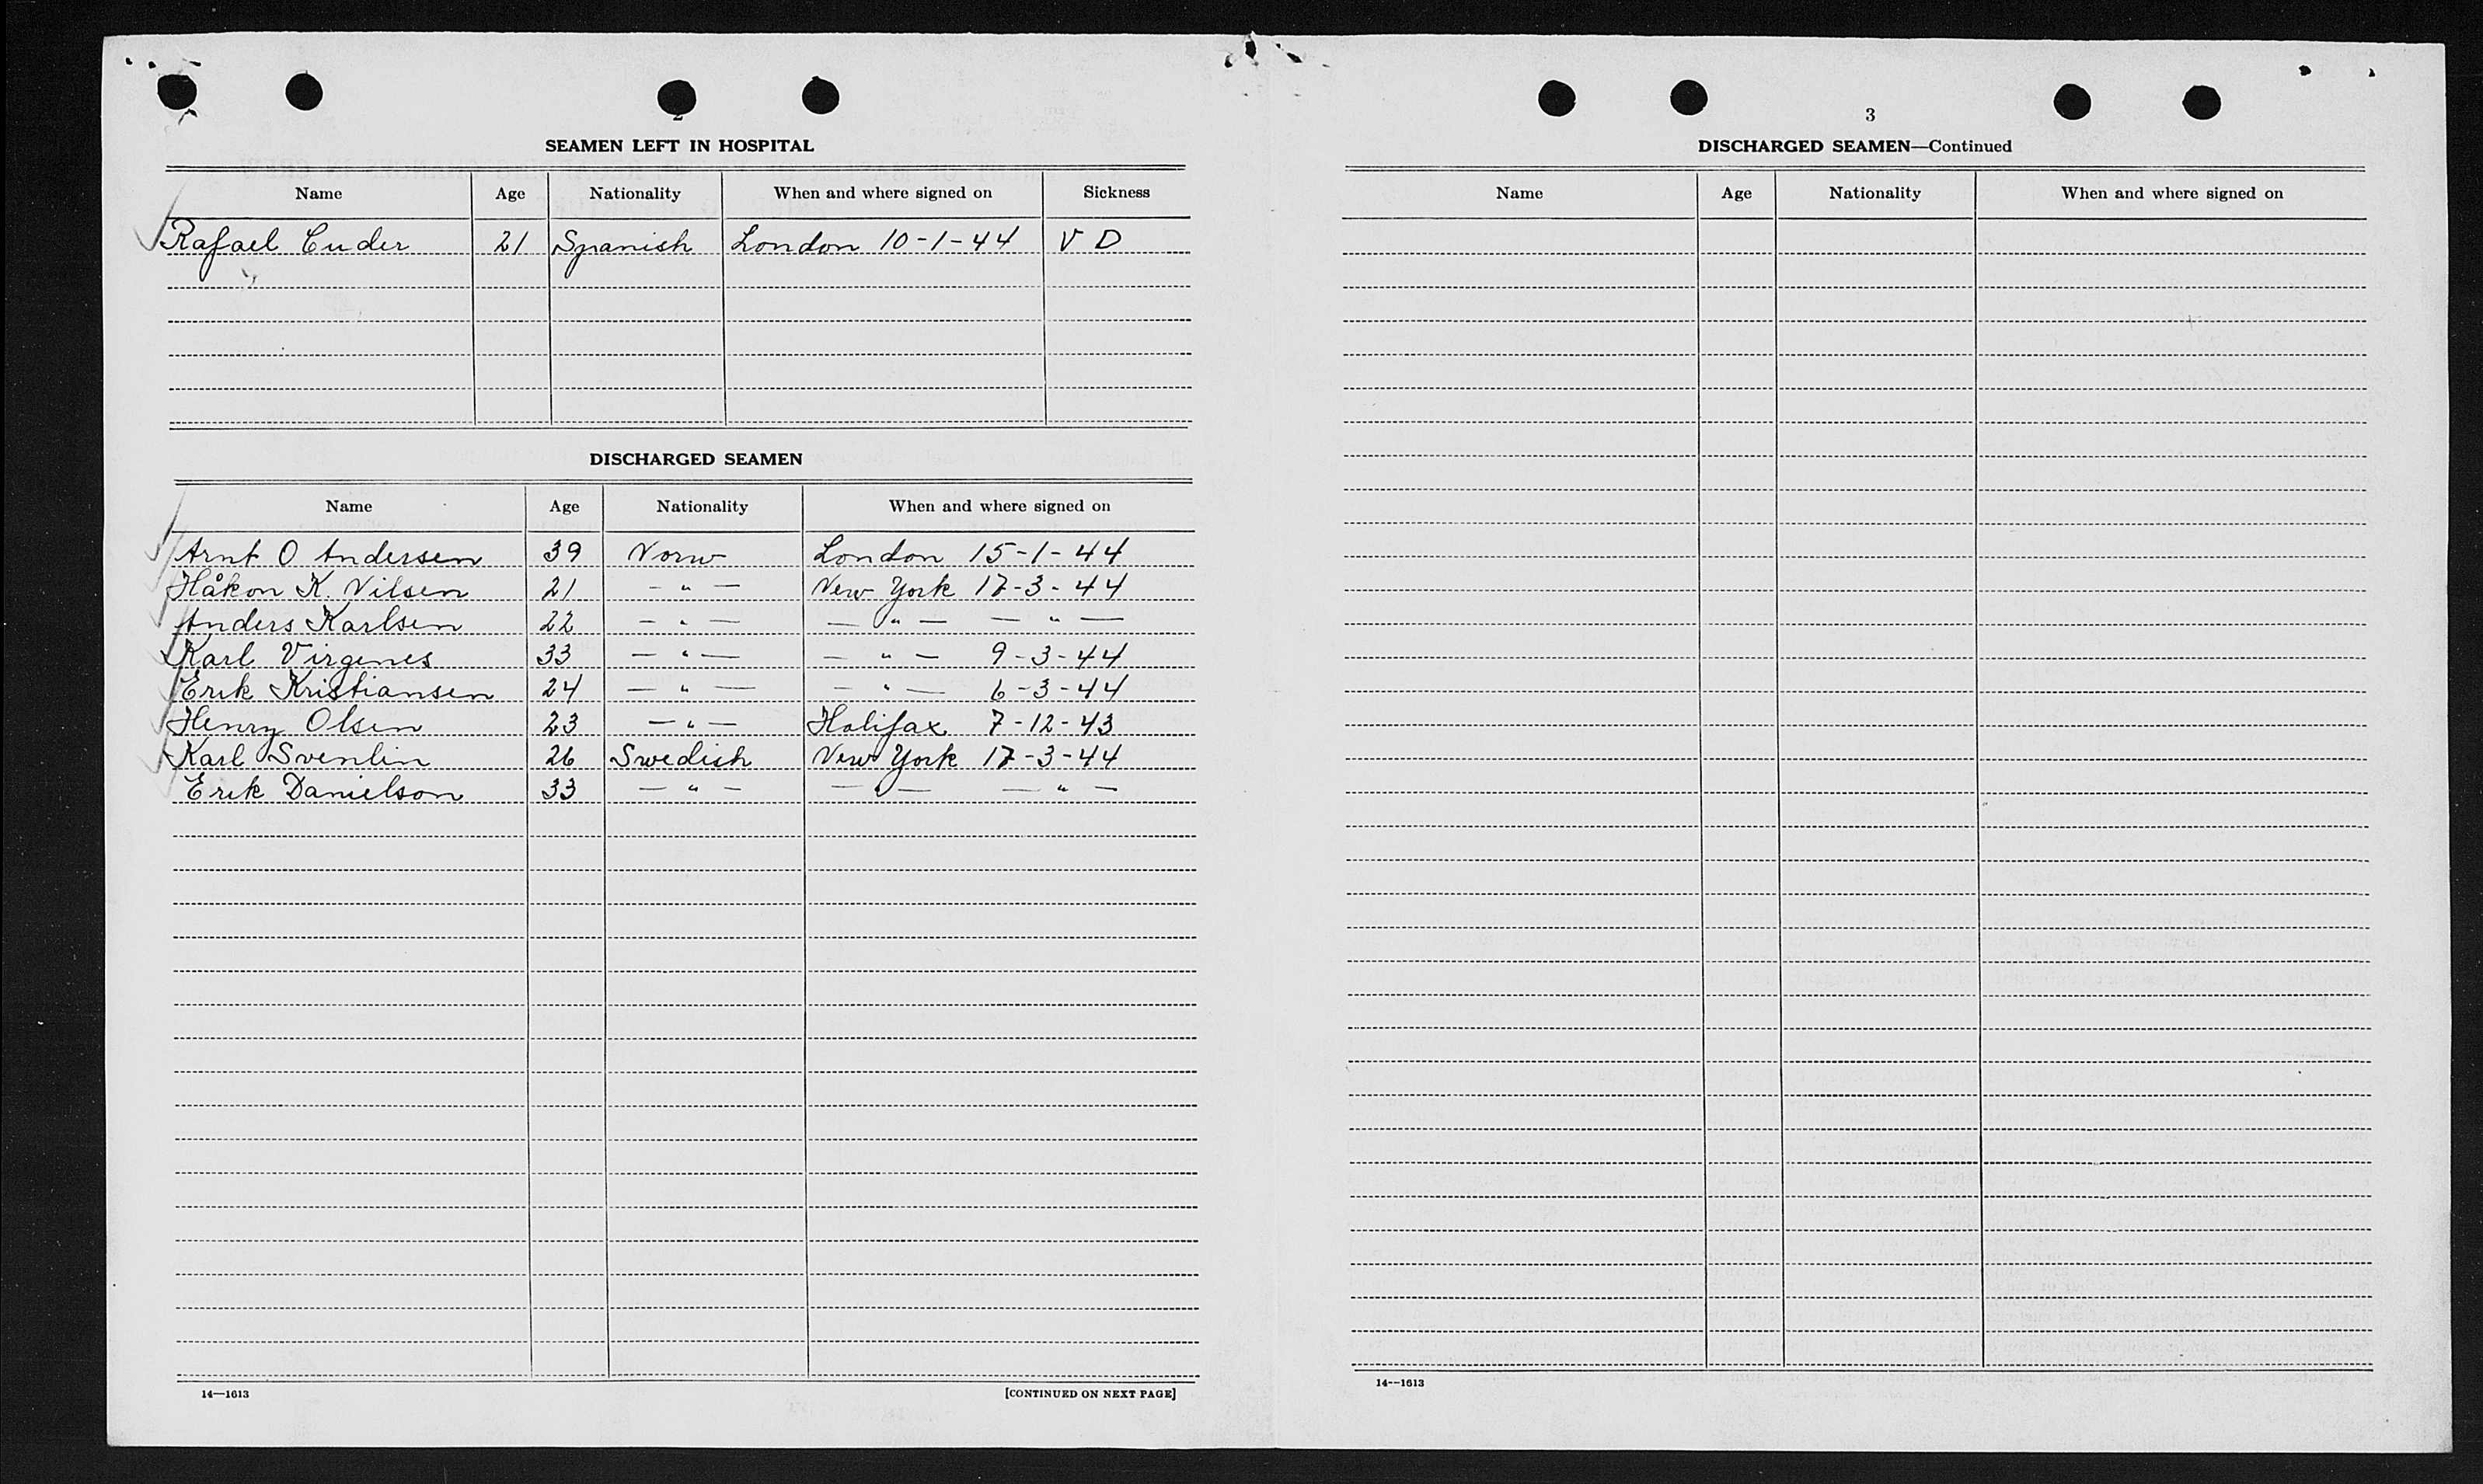 2
SEAMEN LEFT IN HOSPITAL
Name Age Nationality When and where signed on Sickness
Rafael Cuder 21 Spanish London 10-1-44 V D
DISCHARGED SEAMEN
Name Age Nationality When and where signed on
Arnt O Andersen 39 Norw London 15-1-44
Håkon K. Nilsen 21 — " — New York 17-3-44
Anders Karlsen 22 — " — — " — — " —
Karl Virgenes 33 — " — — " — 9-3-44
Erik Kristiansen 24 — " — — " — 6-3-44
Henry Olsen 23 — " — Halifax 7-12-43
Karl Svenlin 26 Swedish New York 17-3-44
Erik Danielson 33 — " — — " — — " —
14—1613 [CONTINUED ON NEXT PAGE]
3
DISCHARGED SEAMEN—Continued
Name Age Nationality When and where signed on
14—1613